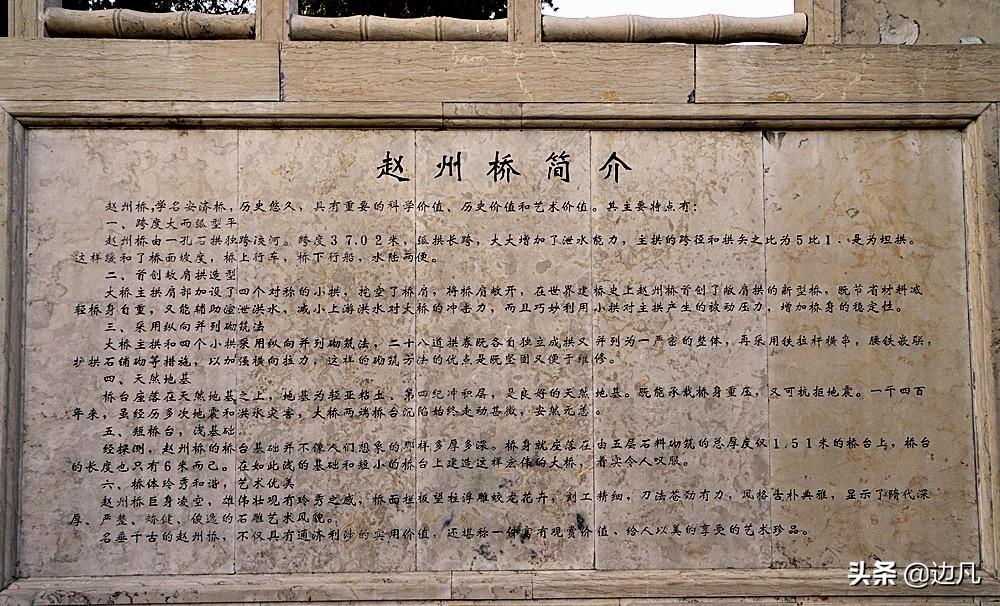 赵州桥简介
赵州桥,学名安济桥,历史悠久,具有重要的科学价值、历史价值和艺术价值。其主要特点有:
一、跨度大而弧型平
赵州桥由一孔石拱独跨洨河。跨度37.02米,弧拱长跨,大大增加了泄水能力,主拱的跨径和拱矢之比为5比1,是为坦拱。
这样缓和了桥面坡度,桥上行车,桥下行船,水陆两便。
二、首创敞肩拱造型
大桥主拱肩部加设了四个对称的小拱,挖空了桥肩,将桥肩敞开,在世界建桥史上赵州桥首创了敞肩拱的新型桥。既节省材料减
轻桥身自重,又能辅助渲泄洪水,减小上游洪水对大桥的冲击力,而且巧妙利用小拱对主拱产生的被动压力,增加桥身的稳定性。
三、采用纵向并列砌筑法
大桥主拱和四个小拱采用纵向并列砌筑法,二十八道拱券既各自独立成拱又并列为一严密的整体,再采用铁拉杆横串,腰铁嵌联,
护拱石铺砌等措施,以加强横向拉力,这样的砌筑方法的优点是既坚固又便于维修。
四、天然地基
桥台座落在天然地基之上,地基为轻亚粘土、第四纪冲积层,是良好的天然地基。既能承载桥身重压,又可抗拒地震。一千四百
年来,虽经历多次地震和洪水灾害,大桥两端桥台沉陷始终走动甚微,安然无恙。
五、短桥台,浅基础
经探测,赵州桥的桥台基础并不像人们想象的那样多厚多深。桥身就座落在由五层石料砌筑的总厚度仅1.51米的桥台上,桥台
的长度也只有6米而已。在如此浅的基础和短小的桥台上建造这样宏伟的大桥,着实令人叹服。
六、桥体玲秀和谐,艺术优美
赵州桥巨身凌空,雄伟壮观有玲秀之感,桥面栏板望柱浮雕蛟龙花卉,刻工精细,刀法苍劲有力,风格古朴典雅,显示了隋代深
厚、严整、矫健、俊逸的石雕艺术风貌。
名垂千古的赵州桥,不仅具有通济利涉的实用价值,还堪称一件富有观赏价值、给人以美的享受的艺术珍品。
头条@边凡